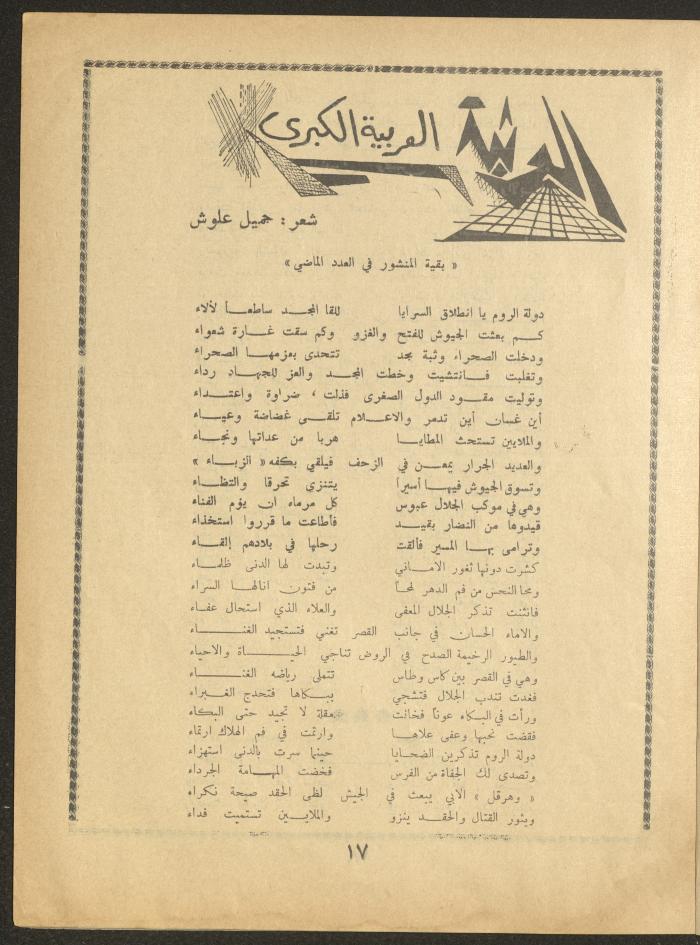 العربية الكبرى
شعر : جميل علوش
« بقية المنشور في العدد الماضي »
دولة الروم يا انطلاق السرايا للقا المجد ساطعاً لألاء
كم بعثت الجيوش للفتح والغزو وكم سقت غارة شعواء
ودخلت الصحراء وثبة مجد تتحدى بعزمها الصحراء
وتغلبت فانتشيت وخطت المجد والعز للجهاد رداء
وتوليت مقود الدول الصغرى فذلت ، ضراوة واعتداء
أين غسان أين تدمر والاعلام تلقى غضاضة وعياء
والملايين تستحث المطايا هربا من عداتها ونجاء
والعديد الجرار يمعن في الزحف فيلقي بكفه « الزباء »
وتسوق الجيوش فيها أسيراً يتنزي تحرقا والتظاء
وهي في موكب الجلال عبوس كل مرماه ان يؤم الفناء
قيدوها من النضار بقيد فأطاعت ما قرروا استخذاء
وترامى بها المسير فألقت رحلها في بلادهم إلقاء
كشرت دونها ثغور الاماني وتبدت لها الدنى ظلماء
ومحا النحس من فم الدهر لحناً من فتون انالها السراء
فانثنت تذكر الجلال المعفى والعلاء الذي استحال عفاء
والاماء الحسان في جانب القصر تغني فتستجيد الغناء
والطيور الرخيمة الصدح في الروض تناجي الحياة والاحياء
وهي في القصر بين كاس وطاس تتملى رياضه الغناء
فغدت تندب الجلال فتشجي ببكاها فتحدج الغبراء
ورأت في البكاء عوناً فخانت مقلة لا تجيد حتى البكاء
فقضت نحبها وعفى علاها وارتمت في فم الهلاك ارتماء
دولة الروم تذكرين الضحايا حينما سرت بالدنى استهزاء
وتصدى لك الجفاة من الفرس فخضت المهامة الجرداء
« وهرقل » الأبي يبعث في الجيش لظى الحقد صيحة نكراء
ويثور القتال والحقد ينزو والملايين تستميت فداء
١٧